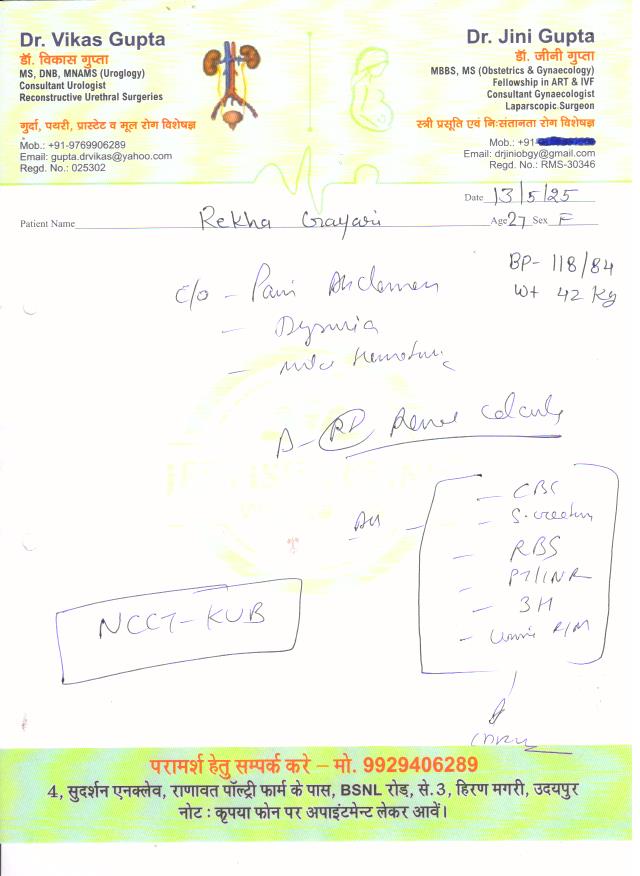 Dr. Vikas Gupta
डॉ. विकास गुप्ता
MS, DNB, MNAMS (Uroglogy)
Consultant Urologist
Reconstructive Urethral Surgeries
गुर्दा, पथरी, प्रास्टेट व मूल रोग विशेषज्ञ
Mob.: +91-9769906289
Email: gupta.drvikas@yahoo.com
Regd. No.: 025302
Dr. Jini Gupta
डॉ. जीनी गुप्ता
MBBS, MS (Obstetrics & Gynaecology)
Fellowship in ART & IVF
Consultant Gynaecologist
Laparscopic Surgeon
स्त्री प्रसूति एवं निःसंतानता रोग विशेषज्ञ
Mob.: +91-
Email: drjiniobgy@gmail.com
Regd. No.: RMS-30346
Date 13/5/25
Patient Name Rekha Age 27 Sex F
BP- 118/84
Wt 42 Kg
C/o - Pain Abdomen
- Dysuria
- mild Hematuria
Δ - RT Renal Calculus
- CBC
- S. creatinine
- RBS
- PT/INR
- 3H
- Urine R/M
NCCT-KUB
परामर्श हेतु सम्पर्क करे – मो. 9929406289
4, सुदर्शन एनक्लेव, राणावत पॉल्ट्री फार्म के पास, BSNL रोड़, से. 3, हिरण मगरी, उदयपुर
नोट : कृपया फोन पर अपाइंटमेन्ट लेकर आवें।